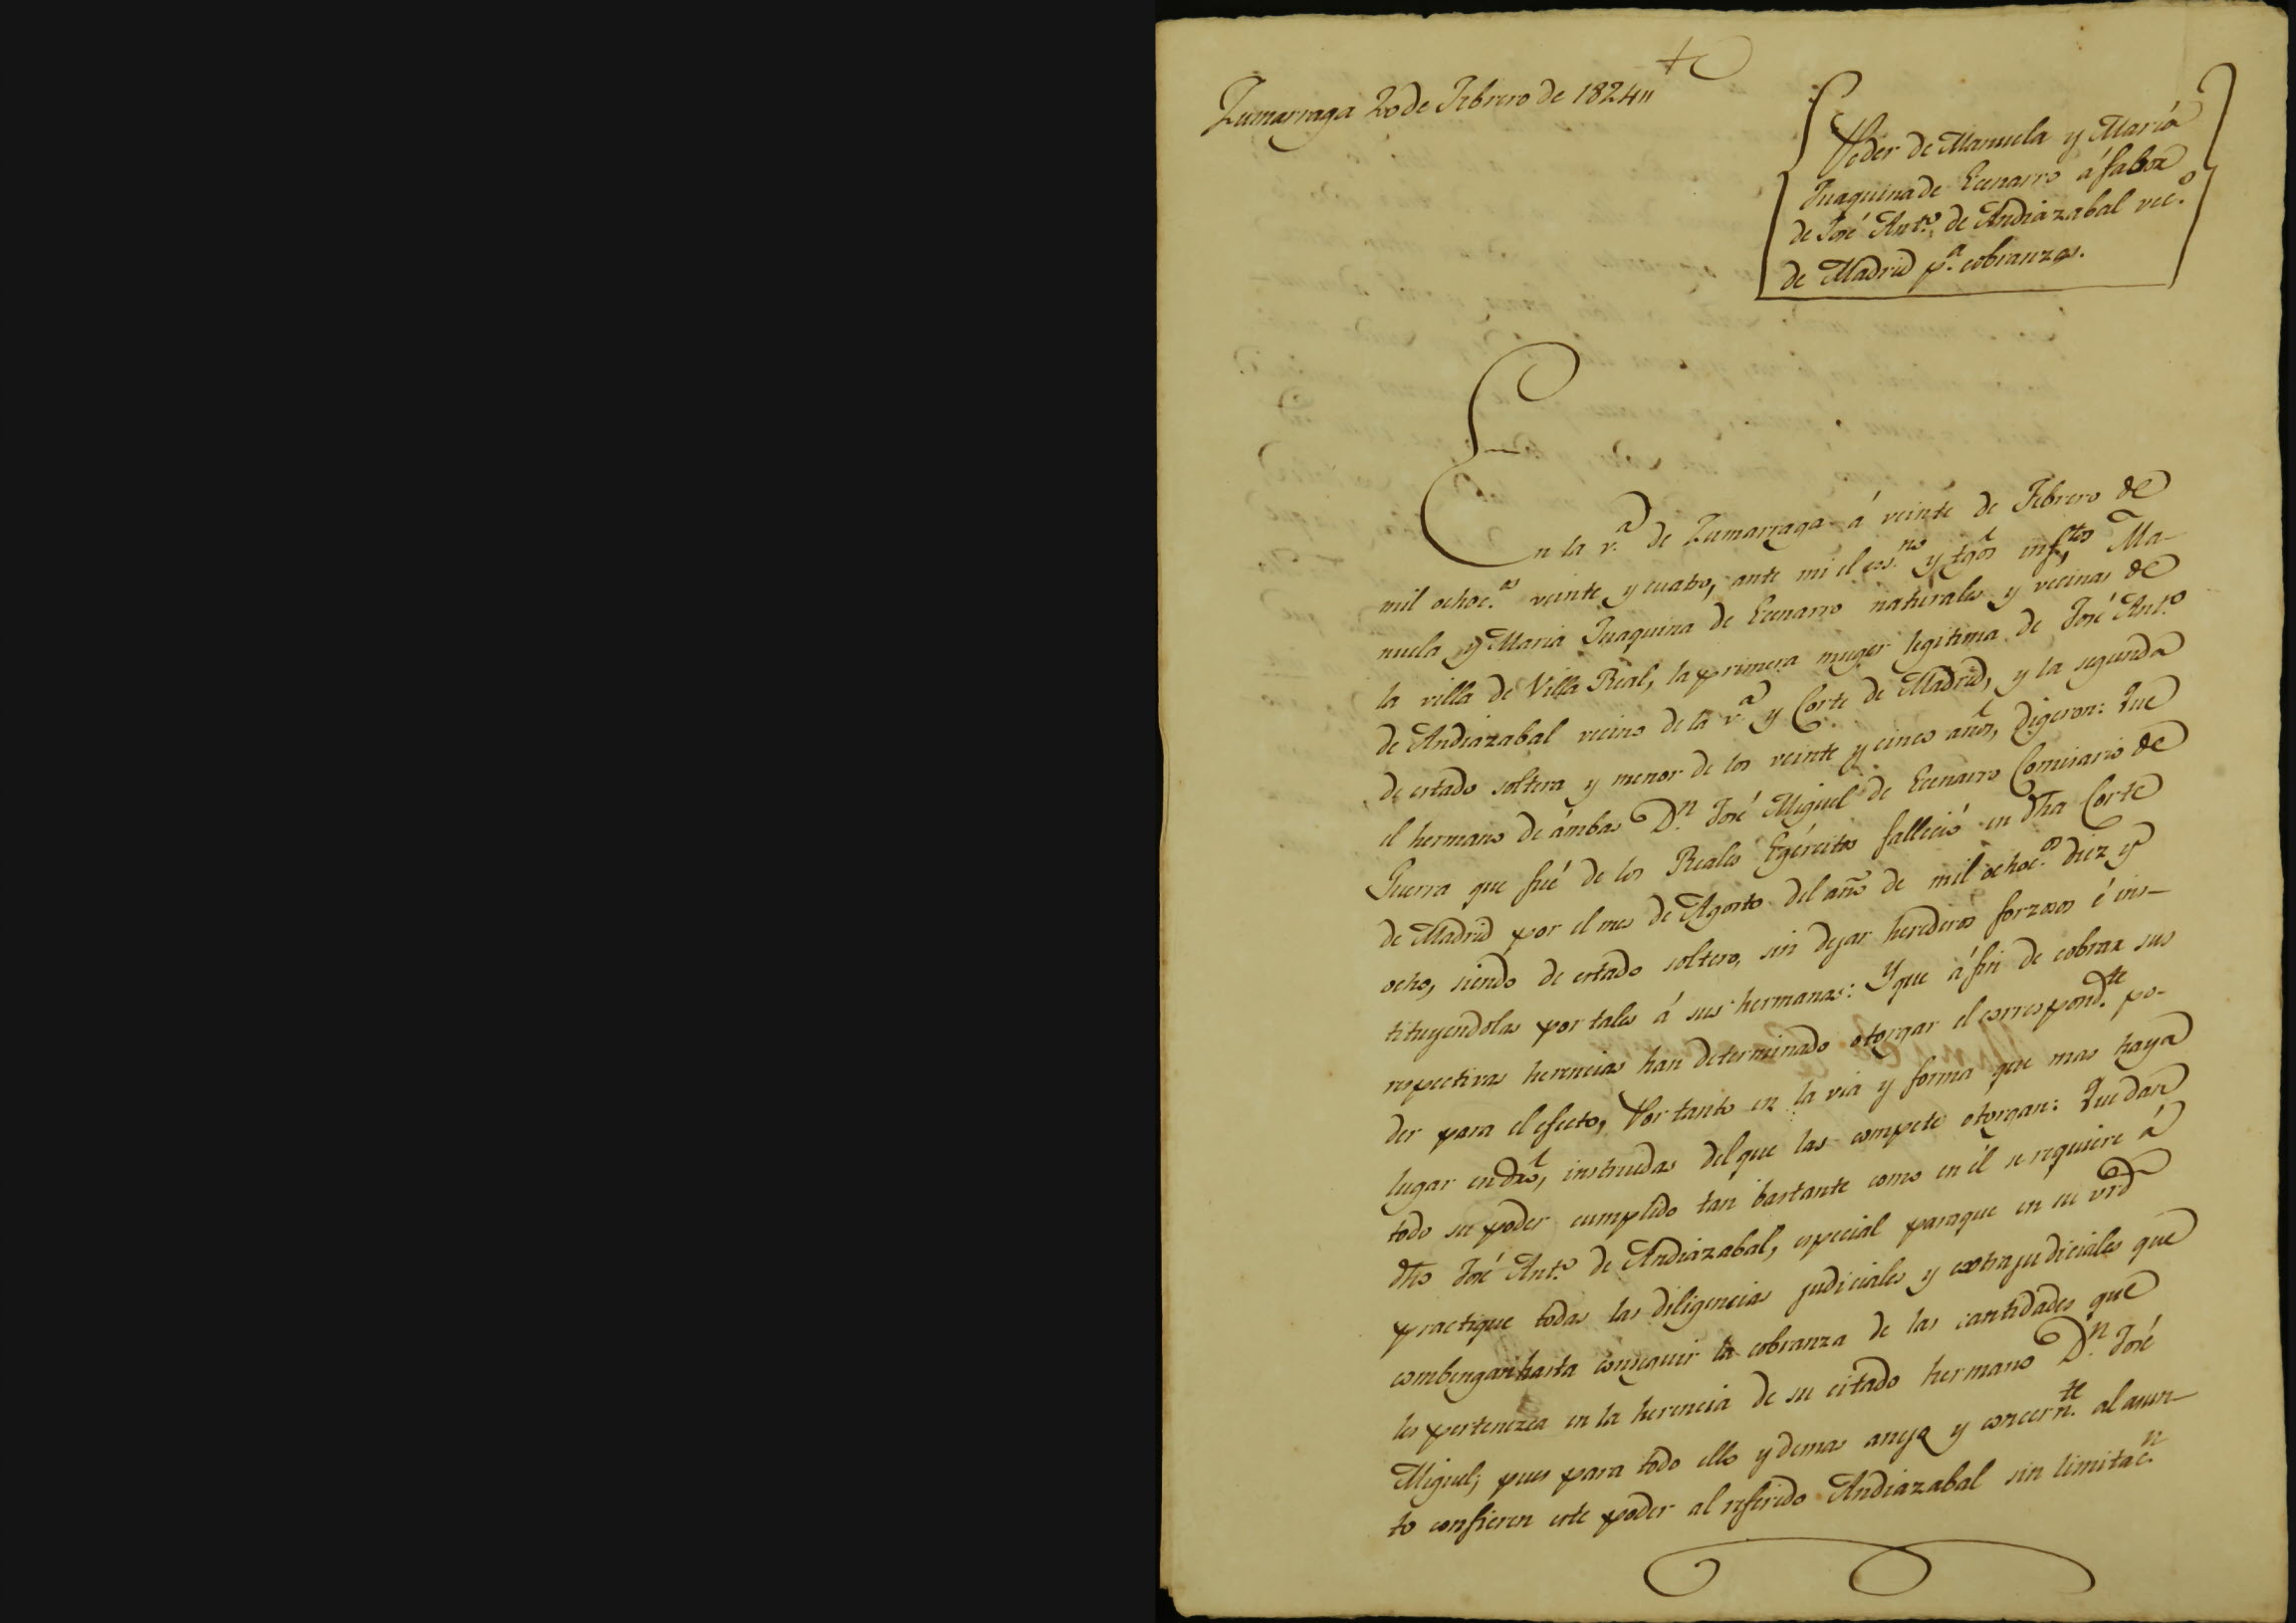 Zumarraga 20 de Febrero de 1824,,
Poder de Manuela y Maria
Juaquina de Ecenarro á fabor
de José Ant.º de Andiazabal vec.º
de Madrid p.ª cobranzas.
En la v.ª de Zumarraga á veinte de Febrero de
mil ochoc.os veinte y cuatro, ante mi el ess.no y tgos infs.tos Ma-
nuela y Maria Juaquina de Ecenarro naturales y vecinas de
la villa de Villa Real, la primera muger legitima de José Ant.º
de Andiazabal vecino de la v.ª y Corte de Madrid, y la segunda
de estado soltera y menor de los veinte y cinco años, digeron: Que
el hermano de ámbas D.n José Miguel de Ecenarro Comisario de
Guerra que fué de los Reales Egércitos falleció en dha Corte
de Madrid por el mes de Agosto del año de mil ochoc.os diez y
ocho, siendo de estado soltero, sin dejar herederos forzosos é ins-
tituyendolas por tales á sus hermanas: Y que á fin de cobrar sus
respectivas herencias han determinado otorgar el correspond.te po-
der para el efecto, Por tanto en la via y forma que mas haya
lugar en dro, instruidas del que las compete otorgan: Que dan
todo su poder cumplido tan bastante como en él se requiere á
dho José Ant.º de Andiazabal, especial paraque en su vrd
practique todas las diligencias judiciales y extrajudiciales que
combengan hasta conseguir la cobranza de las cantidades que
les pertenezca en la herencia de su citado hermano D.n José
Miguel; pues para todo ello y demas anejo y concern.te al asun-
to confieren este poder al referido Andiazabal sin limitac.n